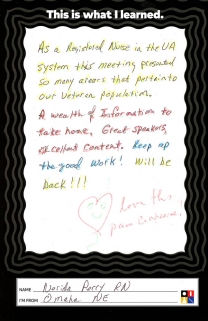 This is what I learned.
As a Registered Nurse in the VA
system this meeting presented
so many areas that pertain to
our Veteran population.
A wealth of Information to
take home, Great speakers,
excellent content. Keep up
the good work! Will be
back!!!
love this
NAME Norida Perry RN
I'M FROM Omaha NE